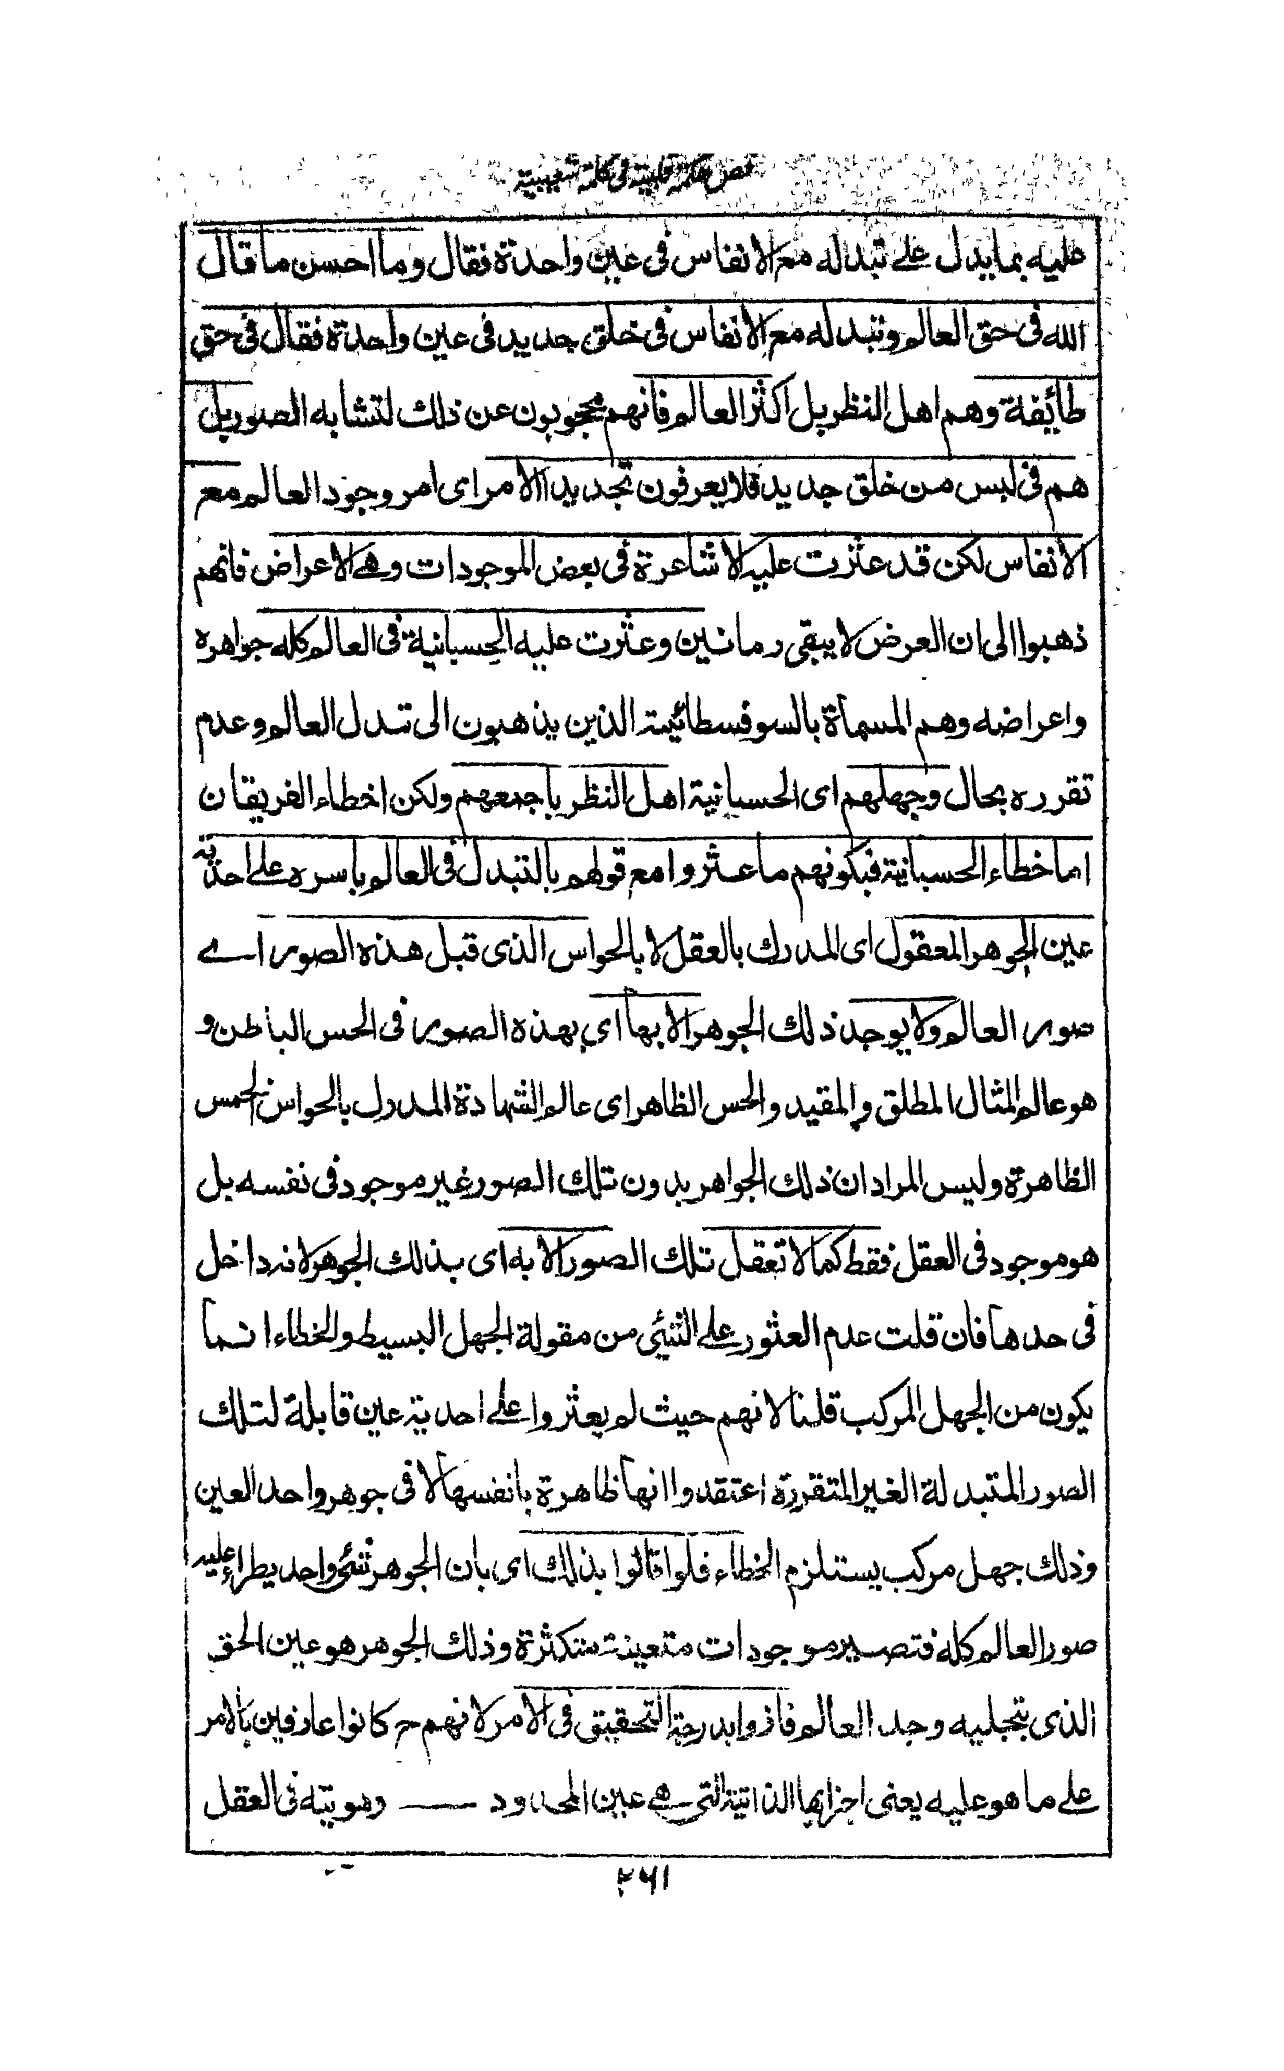 فص حكمة قلبية في كلمة شعيبية
عليه بما يدل على تبدله مع الانفاس فى عين واحدة فقال وما احسن ما قال
الله فى حق العالم وتبدله مع الانفاس فى خلق جديد فى عين واحدة فقال فى حق
طائفة وهم اهل النظر بل اكثر العالم فانهم محجوبون عن ذلك لتشابه الصور بل
هم فى لبس من خلق جديد فلا يعرفون تجديد الامر اى امر وجود العالم مع
الانفاس لكن قد عثرت عليه الاشاعرة فى بعض الموجودات وهى الاعراض فانهم
ذهبوا الى ان العرض لا يبقى زمانين وعثرت عليه الحسبانية فى العالم كله جواهره
واعراضه وهم المسماة بالسوفسطائية الذين يذهبون الى تبدل العالم وعدم
تقرره بحال وجهلهم اى الحسبانية اهل النظر باجمعهم ولكن اخطاء الفريقان
اما خطاء الحسبانية فبكونهم ما عثروا مع قولهم بالتبدل فى العالم باسره على احدية
عين الجوهر المعقول اى المدرك بالعقل لا بالحواس الذى قبل هذه الصور اے
صور العالم ولا يوجد ذلك الجوهر الا بها اى بهذه الصور فى الحس الباطن و
هو عالم المثال المطلق والمقيد والحس الظاهر اى عالم الشهادة المدرك بالحواس الخمس
الظاهرة وليس المراد ان ذلك الجواهر بدون تلك الصور غير موجود فى نفسه بل
هو موجود فى العقل فقط كما لا تعقل تلك الصور الا به اى بذلك الجوهر لانه داخل
فى حدها فان قلت عدم العثور على الشئ من مقولة الجهل البسيط والخطاء انما
يكون من الجهل المركب قلنا لانهم حيث لم يعثروا على احدية عين قابلة لتلك
الصور المتبدلة الغير المتقررة اعتقدوا انها ظاهرة بانفسها لا فى جوهر واحد العين
وذلك جهل مركب يستلزم الخطاء فلو قالوا بذلك اى بان الجوهر شئ واحد يطراء عليه
صور العالم كله فتصير موجودات متعينة متكثرة وذلك الجوهر هو عين الحق
الذى بتجليه وجد العالم فازوا بدرجة التحقيق فى الامر لانهم ح كانوا عارفين بالامر
على ما هو عليه يعنى اجزائها الذاتية التى هى عين المحدود ـــ وهويته فى العقل
۲۶۱